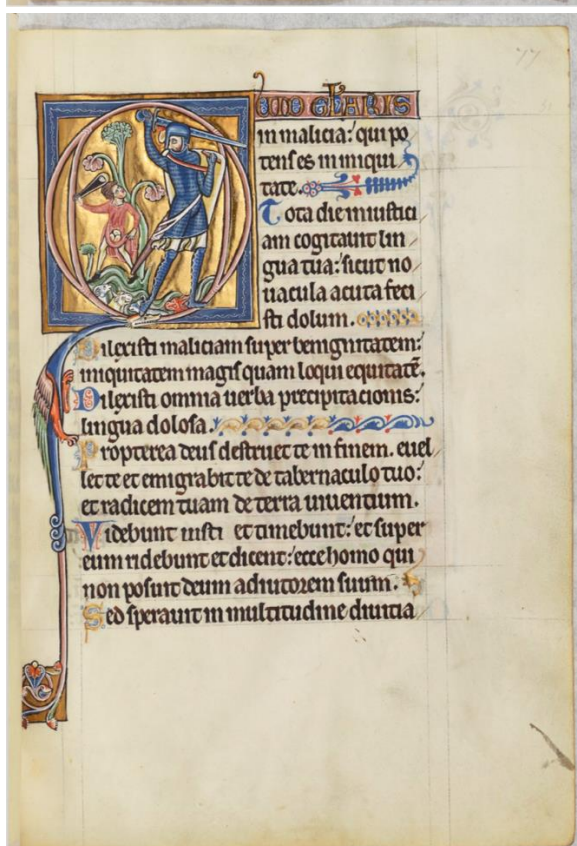 77
QUID GLORIARIS
in malicia: qui po
tens es in iniqui
tate.
Tota die iniustici
am cogitauit lin
gua tua: sicut no
uacula acuta feci
sti dolum.
Dilexisti maliciam super benignitatem:
iniquitatem magis quam loqui equitatē.
Dilexisti omnia uerba precipitacionis:
lingua dolosa.
Propterea deus destruet te in finem. euel
let te et emigrabit te de tabernaculo tuo:
et radicem tuam de terra uiuentium.
Videbunt iusti et timebunt: et super
eum ridebunt et dicent: ecce homo qui
non posuit deum adiutorem suum.
Sed sperauit in multitudine diuitia